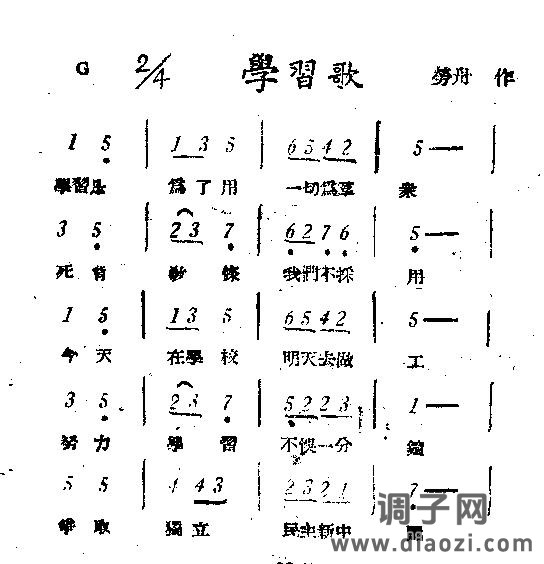 G 2/4 學習歌 勞舟 作
1 5 | 1 3 5 | 6 5 4 2 | 5 — |
學習 爲了用 一切爲羣衆
3 5 | 2 3 7 | 6 2 7 6 | 5 — |
死背 教條 我們不採用
1 5 | 1 3 5 | 6 5 4 2 | 5 — |
今天 在學校 明天去做工
3 5 | 2 3 7 | 5 2 2 3 | 1 — |
努力 學習 不悞一分鐘
5 5 | 4 4 3 | 2 3 2 1 | 7 — |
爭取 獨立 民主新中
调子网
www.diaozi.com